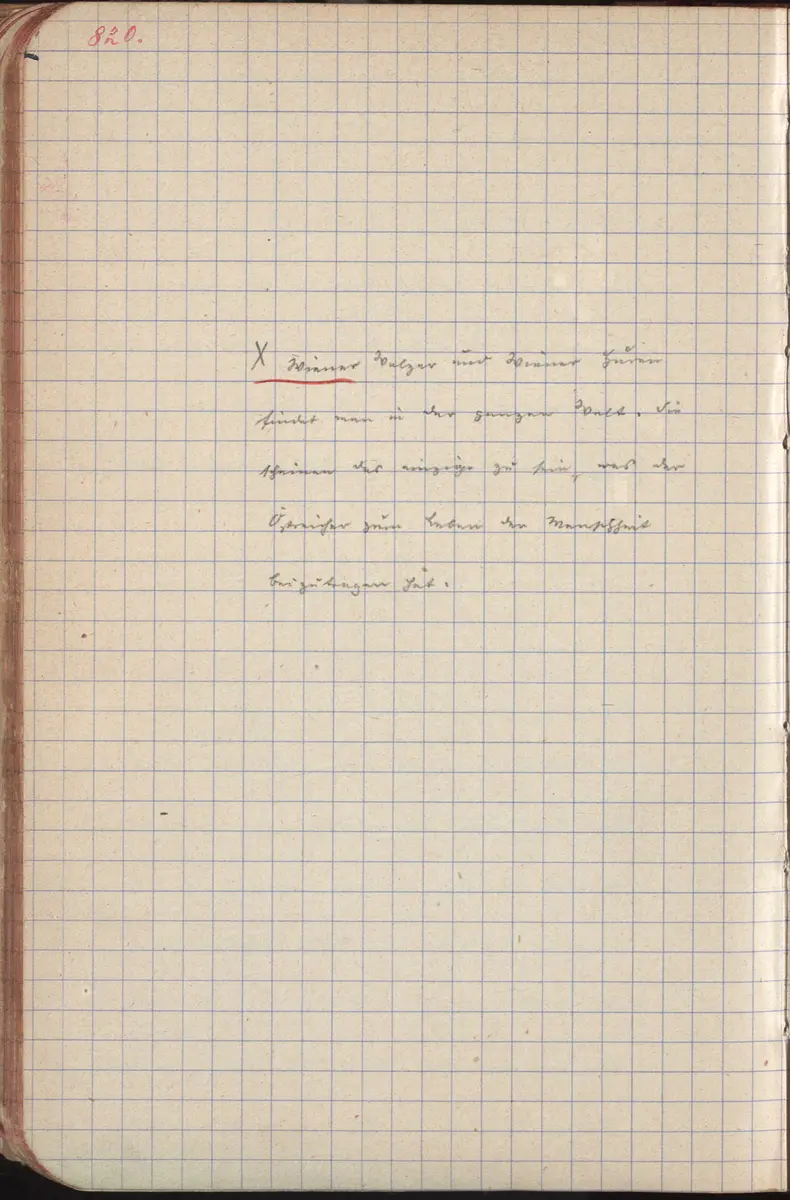 820.
X Wiener Walzer und Wiener Huren
findet man in der ganzen Welt. Sie
scheinen das einzige zu sein, was der
Östreicher zum Leben der Menschheit
beizutragen hat.